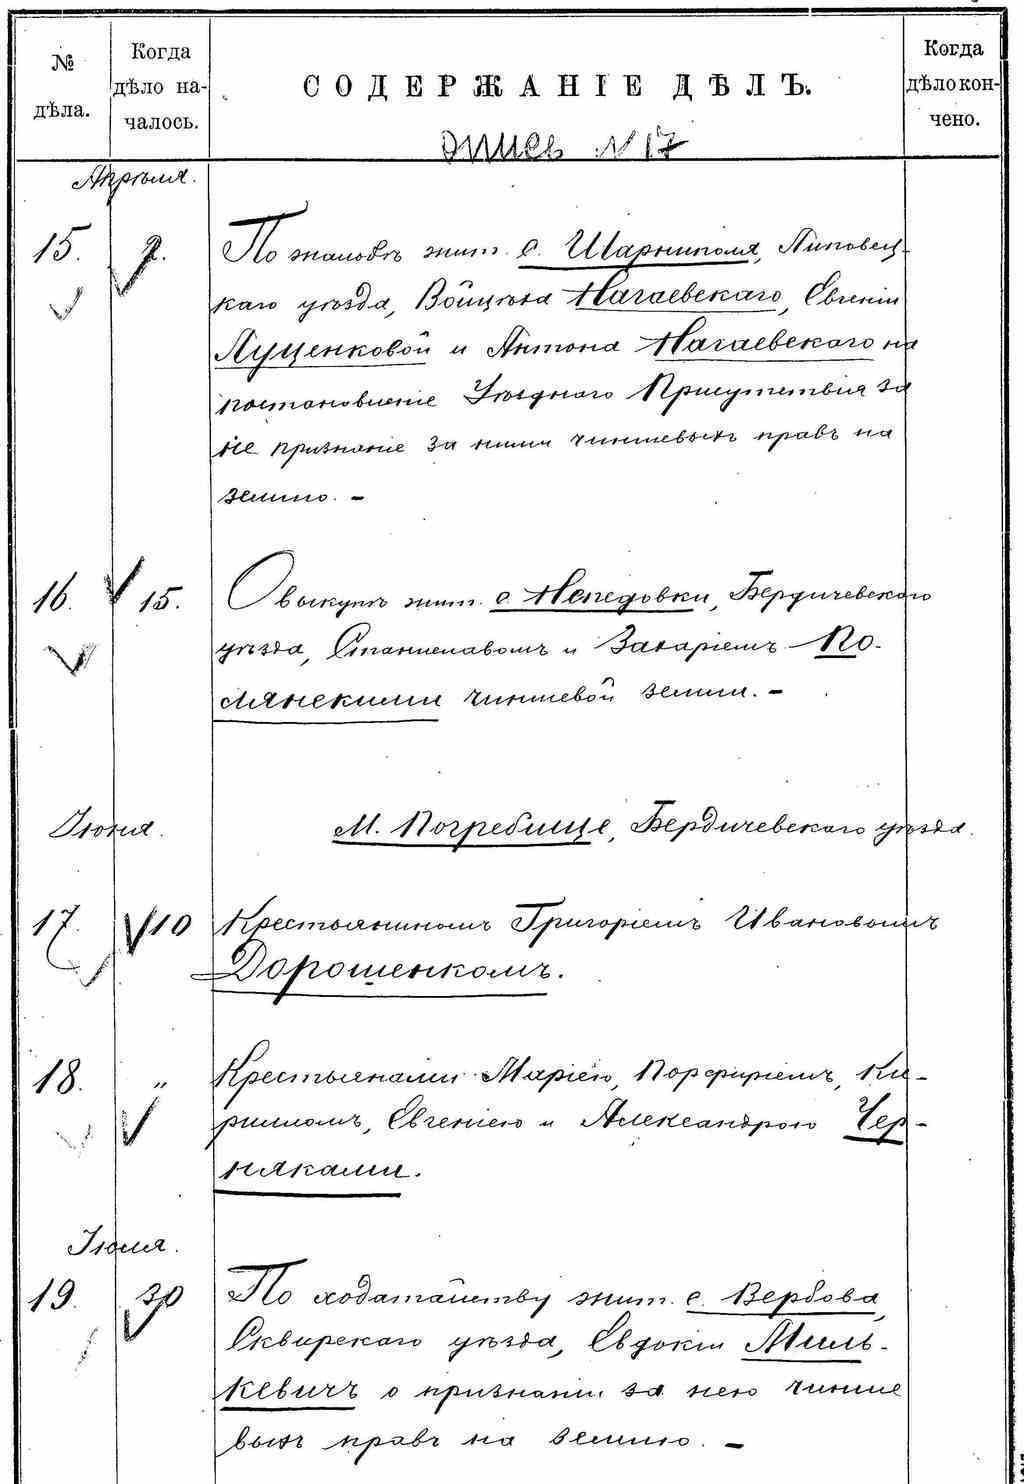 № дѣла.
Когда дѣло началось.
СОДЕРЖАНІЕ ДѢЛЪ.
Когда дѣло кончено.
опись N 17
Апрѣля.
15. 2. По жалобѣ жит. с. Шарниполя, Липовец-
каго уѣзда, Войцѣха Нагаевскаго, Евгеніи
Луценковой и Антона Нагаевскаго на
постановленіе Уѣзднаго Присутствія за
не признаніе за ними чиншевыхъ правъ на
землю. –
16. 15. О выкупѣ жит. с. Непедовки, Бердичевскаго
уѣзда, Станиславомъ и Захаріемъ По-
лянскими чиншевой земли. –
Іюня. М. Погребище, Бердичевскаго уѣзда.
17. 10 Крестьяниномъ Григоріемъ Ивановымъ
Дорошенкомъ.
18. " Крестьянами Маріею, Порфиріемъ, Ки-
рилломъ, Евгеніею и Александрою Чер-
няками.
Іюля.
19. 30 По ходатайству жит. с. Вербова,
Сквирскаго уѣзда, Евдокіи Миль-
кевичъ о признаніи за нею чинше
выхъ правъ на землю. –